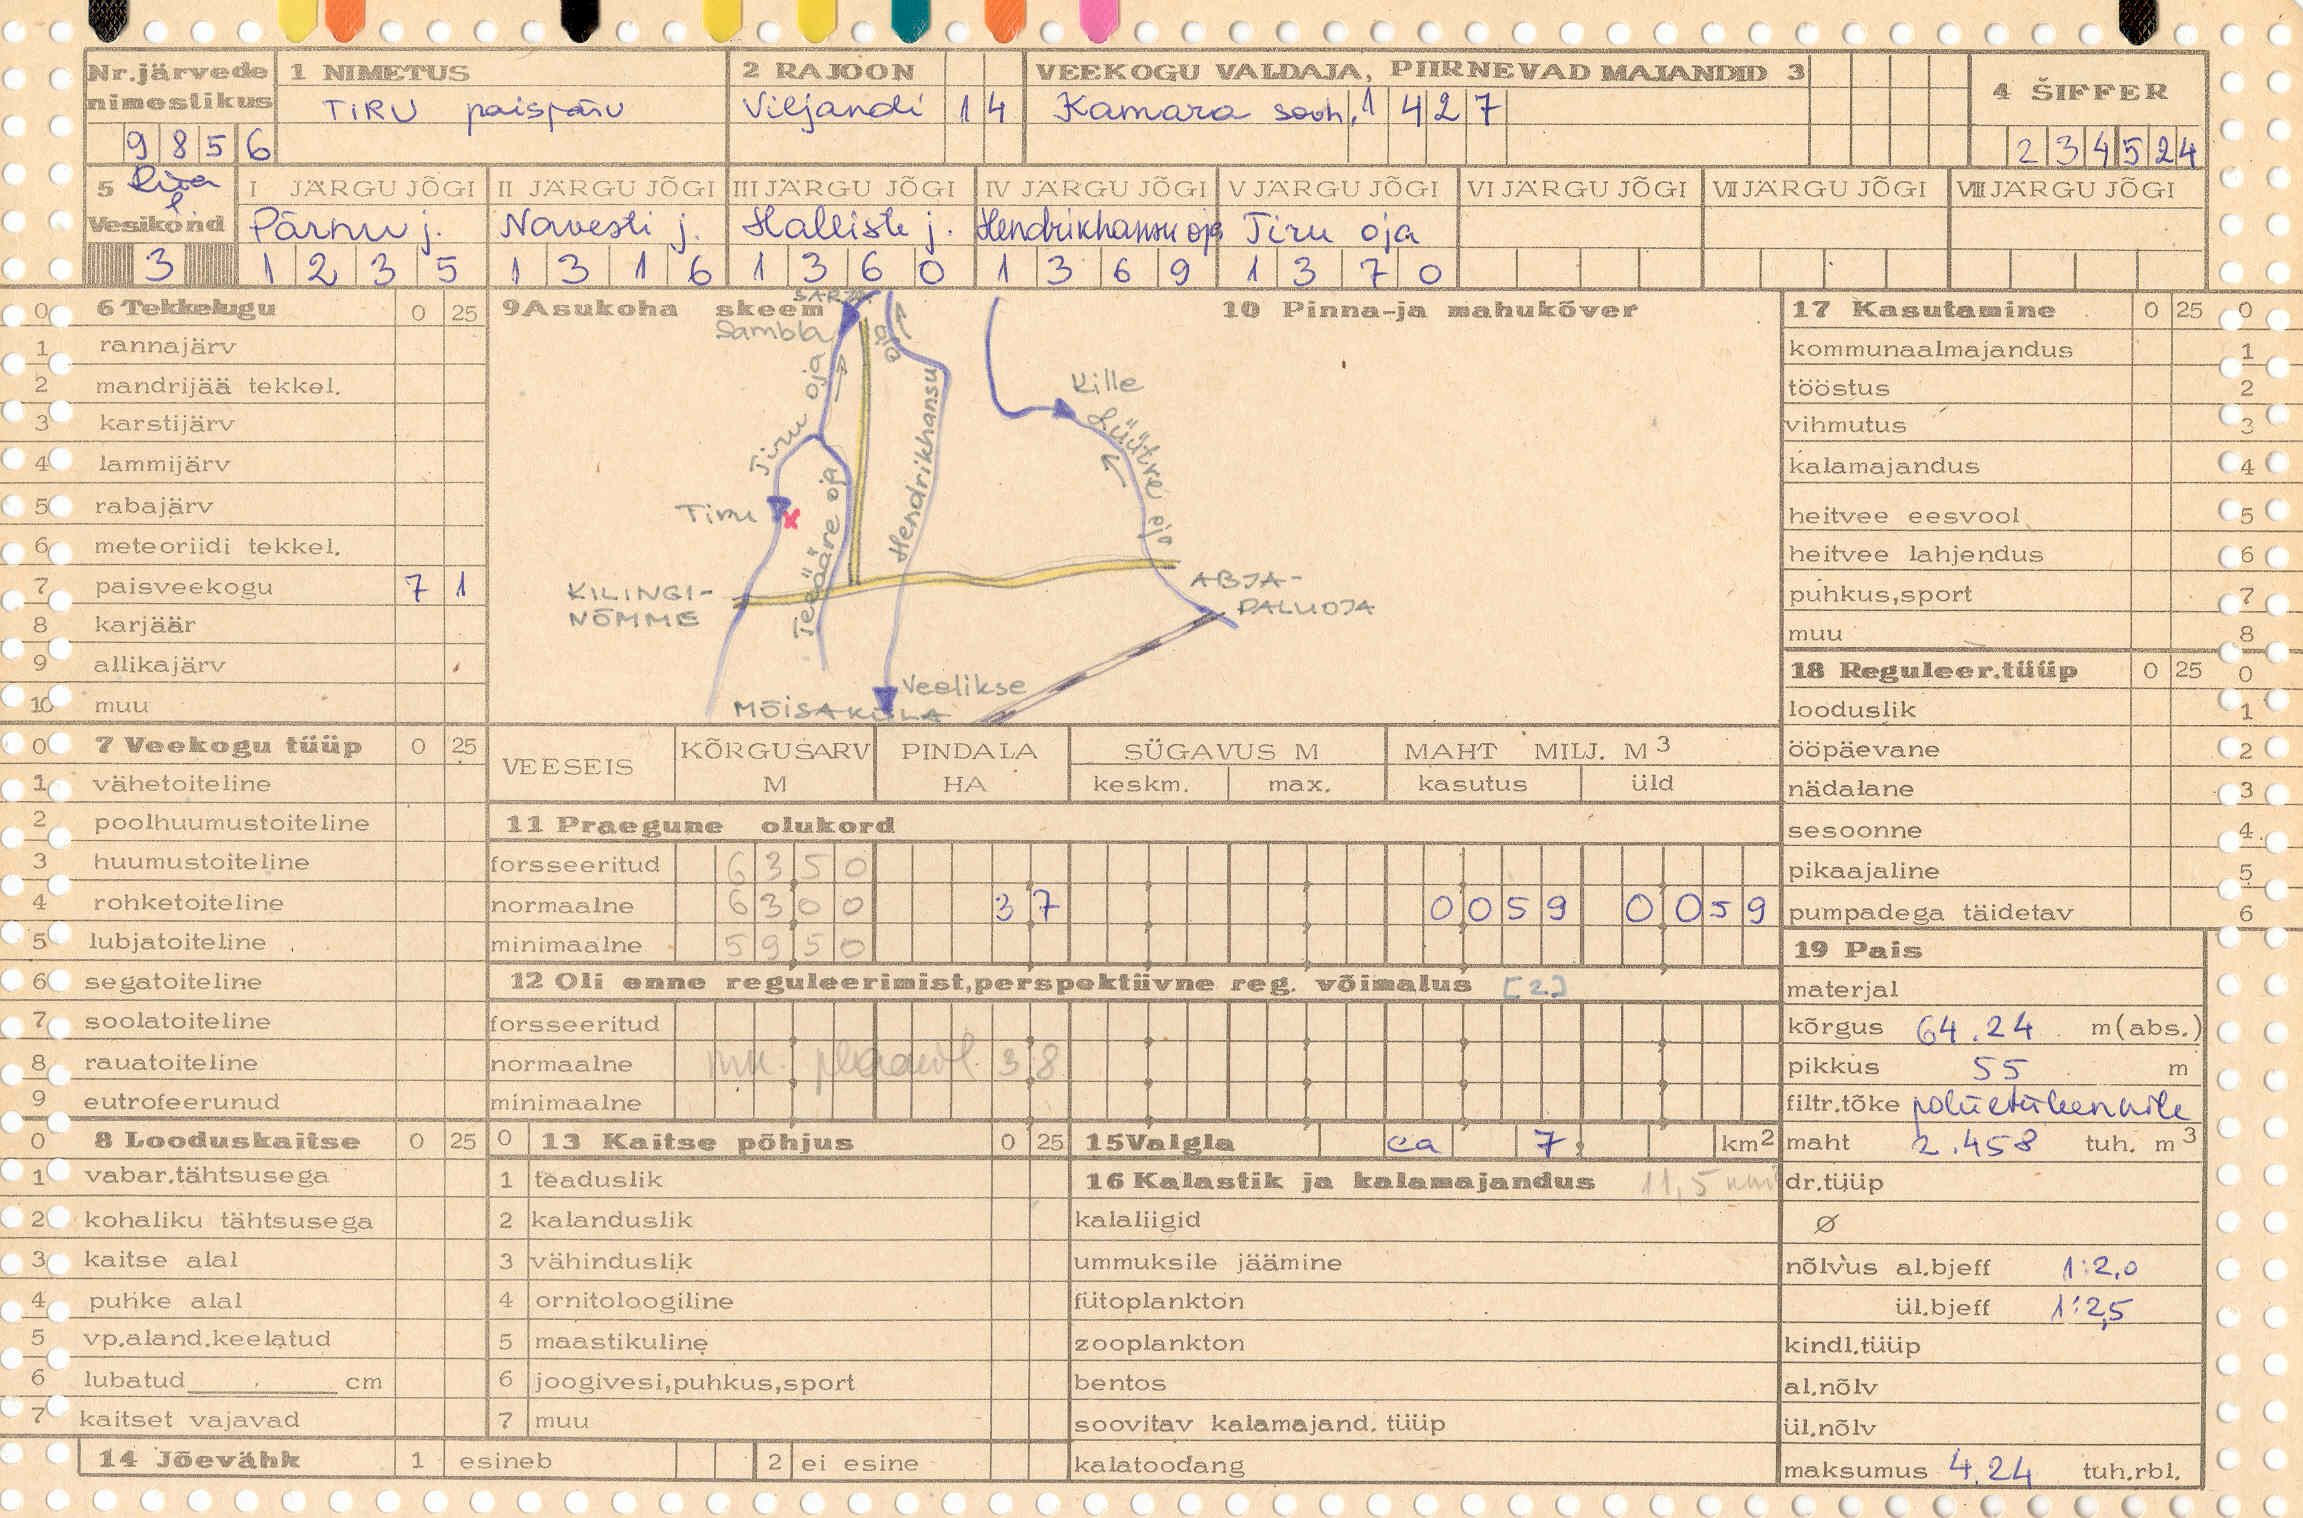 Nr.järvede nimestikus 9856
1 NIMETUS
TIRU paisjärv
2 RAJOON
Viljandi 14
VEEKOGU VALDAJA, PIIRNEVAD MAJANDID 3
Kamara sovh. 1427
4 ŠIFFER
234524
5 Vesikond 3
I JÄRGU JÕGI
Pärnu j.
1235
II JÄRGU JÕGI
Navesti j.
1316
III JÄRGU JÕGI
Halliste j.
1360
IV JÄRGU JÕGI
Hendrikhansu oja
1369
V JÄRGU JÕGI
Tiru oja
1370
VI JÄRGU JÕGI
VII JÄRGU JÕGI
VIII JÄRGU JÕGI
0 6 Tekkelugu 0 25
1 rannajärv
2 mandrijää tekkel.
3 karstijärv
4 lammijärv
5 rabajärv
6 meteoriidi tekkel.
7 paisveekogu 7 1
8 karjäär
9 allikajärv
10 muu
0 7 Veekogu tüüp 0 25
1 vähetoiteline
2 poolhuumustoiteline
3 huumustoiteline
4 rohketoiteline
5 lubjatoiteline
6 segatoiteline
7 soolatoiteline
8 rauatoiteline
9 eutrofeerunud
0 8 Looduskaitse 0 25
1 vabar.tähtsusega
2 kohaliku tähtsusega
3 kaitse alal
4 puhke alal
5 vp.aland.keelatud
6 lubatud cm
7 kaitset vajavad
14 Jõevähk 1 esineb 2 ei esine
9 Asukoha skeem
SARJA
Sambla
oja
Tiru oja
Hendrikhansu
Kille
Lüütre oja
Tiru
Teeääre oja
KILINGI-
NÕMME
ABJA-
PALUOJA
Veelikse
MÕISAKÜLA
10 Pinna-ja mahukõver
VEESEIS
KÕRGUSARV M
PINDALA HA
SÜGAVUS M
keskm. max.
MAHT MILJ. M3
kasutus üld
11 Praegune olukord
forsseeritud 6350
normaalne 6300 37 0059 0059
minimaalne 5950
12 Oli enne reguleerimist,perspektiivne reg. võimalus [2]
forsseeritud
normaalne 38
minimaalne
0 13 Kaitse põhjus 0 25
1 teaduslik
2 kalanduslik
3 vähinduslik
4 ornitoloogiline
5 maastikuline
6 joogivesi,puhkus,sport
7 muu
15 Valgla ca 7 km2
16 Kalastik ja kalamajandus 11,5
kalaliigid
ummuksile jäämine
fütoplankton
zooplankton
bentos
soovitav kalamajand. tüüp
kalatoodang
17 Kasutamine 0 25 0
kommunaalmajandus 1
tööstus 2
vihmutus 3
kalamajandus 4
heitvee eesvool 5
heitvee lahjendus 6
puhkus,sport 7
muu 8
18 Reguleer.tüüp 0 25 0
looduslik 1
ööpäevane 2
nädalane 3
sesoonne 4
pikaajaline 5
pumpadega täidetav 6
19 Pais
materjal
kõrgus 64.24 m(abs.)
pikkus 55 m
filtr.tõke polüetüleenkile
maht 2.458 tuh. m3
dr.tüüp
Ø
nõlvus al.bjeff 1:2,0
ül.bjeff 1:2,5
kindl.tüüp
al.nõlv
ül.nõlv
maksumus 4.24 tuh.rbl.